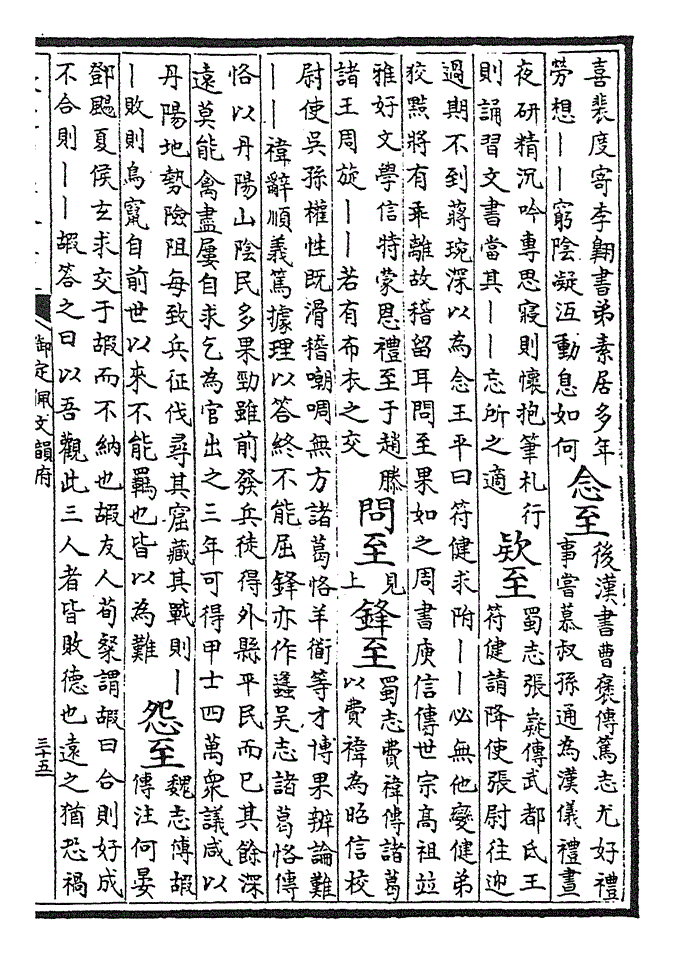 喜裴度寄李翺書弟素居多年
勞想——窮陰凝沍動息如何
念至
後漢書曹褒傳篤志尤好禮
事嘗慕叔孫通為漢儀禮晝
夜研精沉吟專思寢則懷抱筆札行
則誦習文書當其——忘所之適
欵至
蜀志張嶷傳武都氐王
符健請降使張尉往迎
過期不到蔣琬深以為念王平曰符健求附——必無他變健弟
狡黠將有乖離故稽留耳問至果如之周書庾信傳世宗高祖竝
雅好文學信特蒙恩禮至于趙滕
諸王周旋——若有布衣之交
問至
見
上
鋒至
蜀志費禕傳諸葛
以費禕為昭信校
尉使吳孫權性既滑稽嘲啁無方諸葛恪羊衜等才博果辨論難
——禕辭順義篤據理以答終不能屈鋒亦作蠭吳志諸葛恪傳
恪以丹陽山陰民多果勁雖前發兵徒得外縣平民而已其餘深
遠莫能禽盡屢自求乞為官出之三年可得甲士四萬衆議咸以
丹陽地勢險阻每致兵征伐尋其窟藏其戰則—
—敗則鳥竄自前世以來不能羈也皆以為難
怨至
魏志傅嘏
傳注何晏
鄧颺夏侯玄求交于嘏而不納也嘏友人荀粲謂嘏曰合則好成
不合則——嘏答之曰以吾觀此三人者皆敗德也遠之猶恐禍
御定佩文韻府
三十五